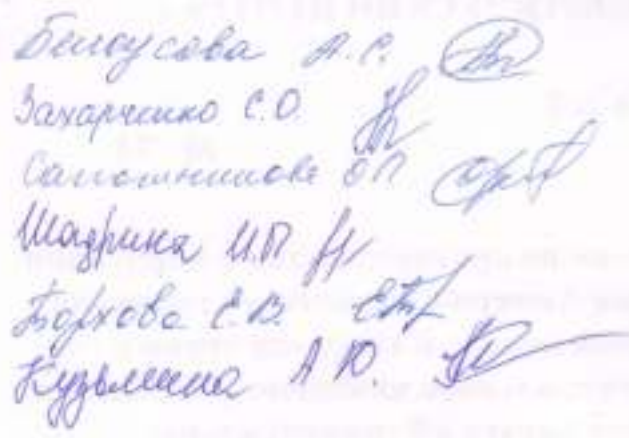 Белоусова А.С.
Захарченко С.О.
Сапожникова О П
Шадрина И.П
Борхова Е.В.
Кузьмина А Ю.